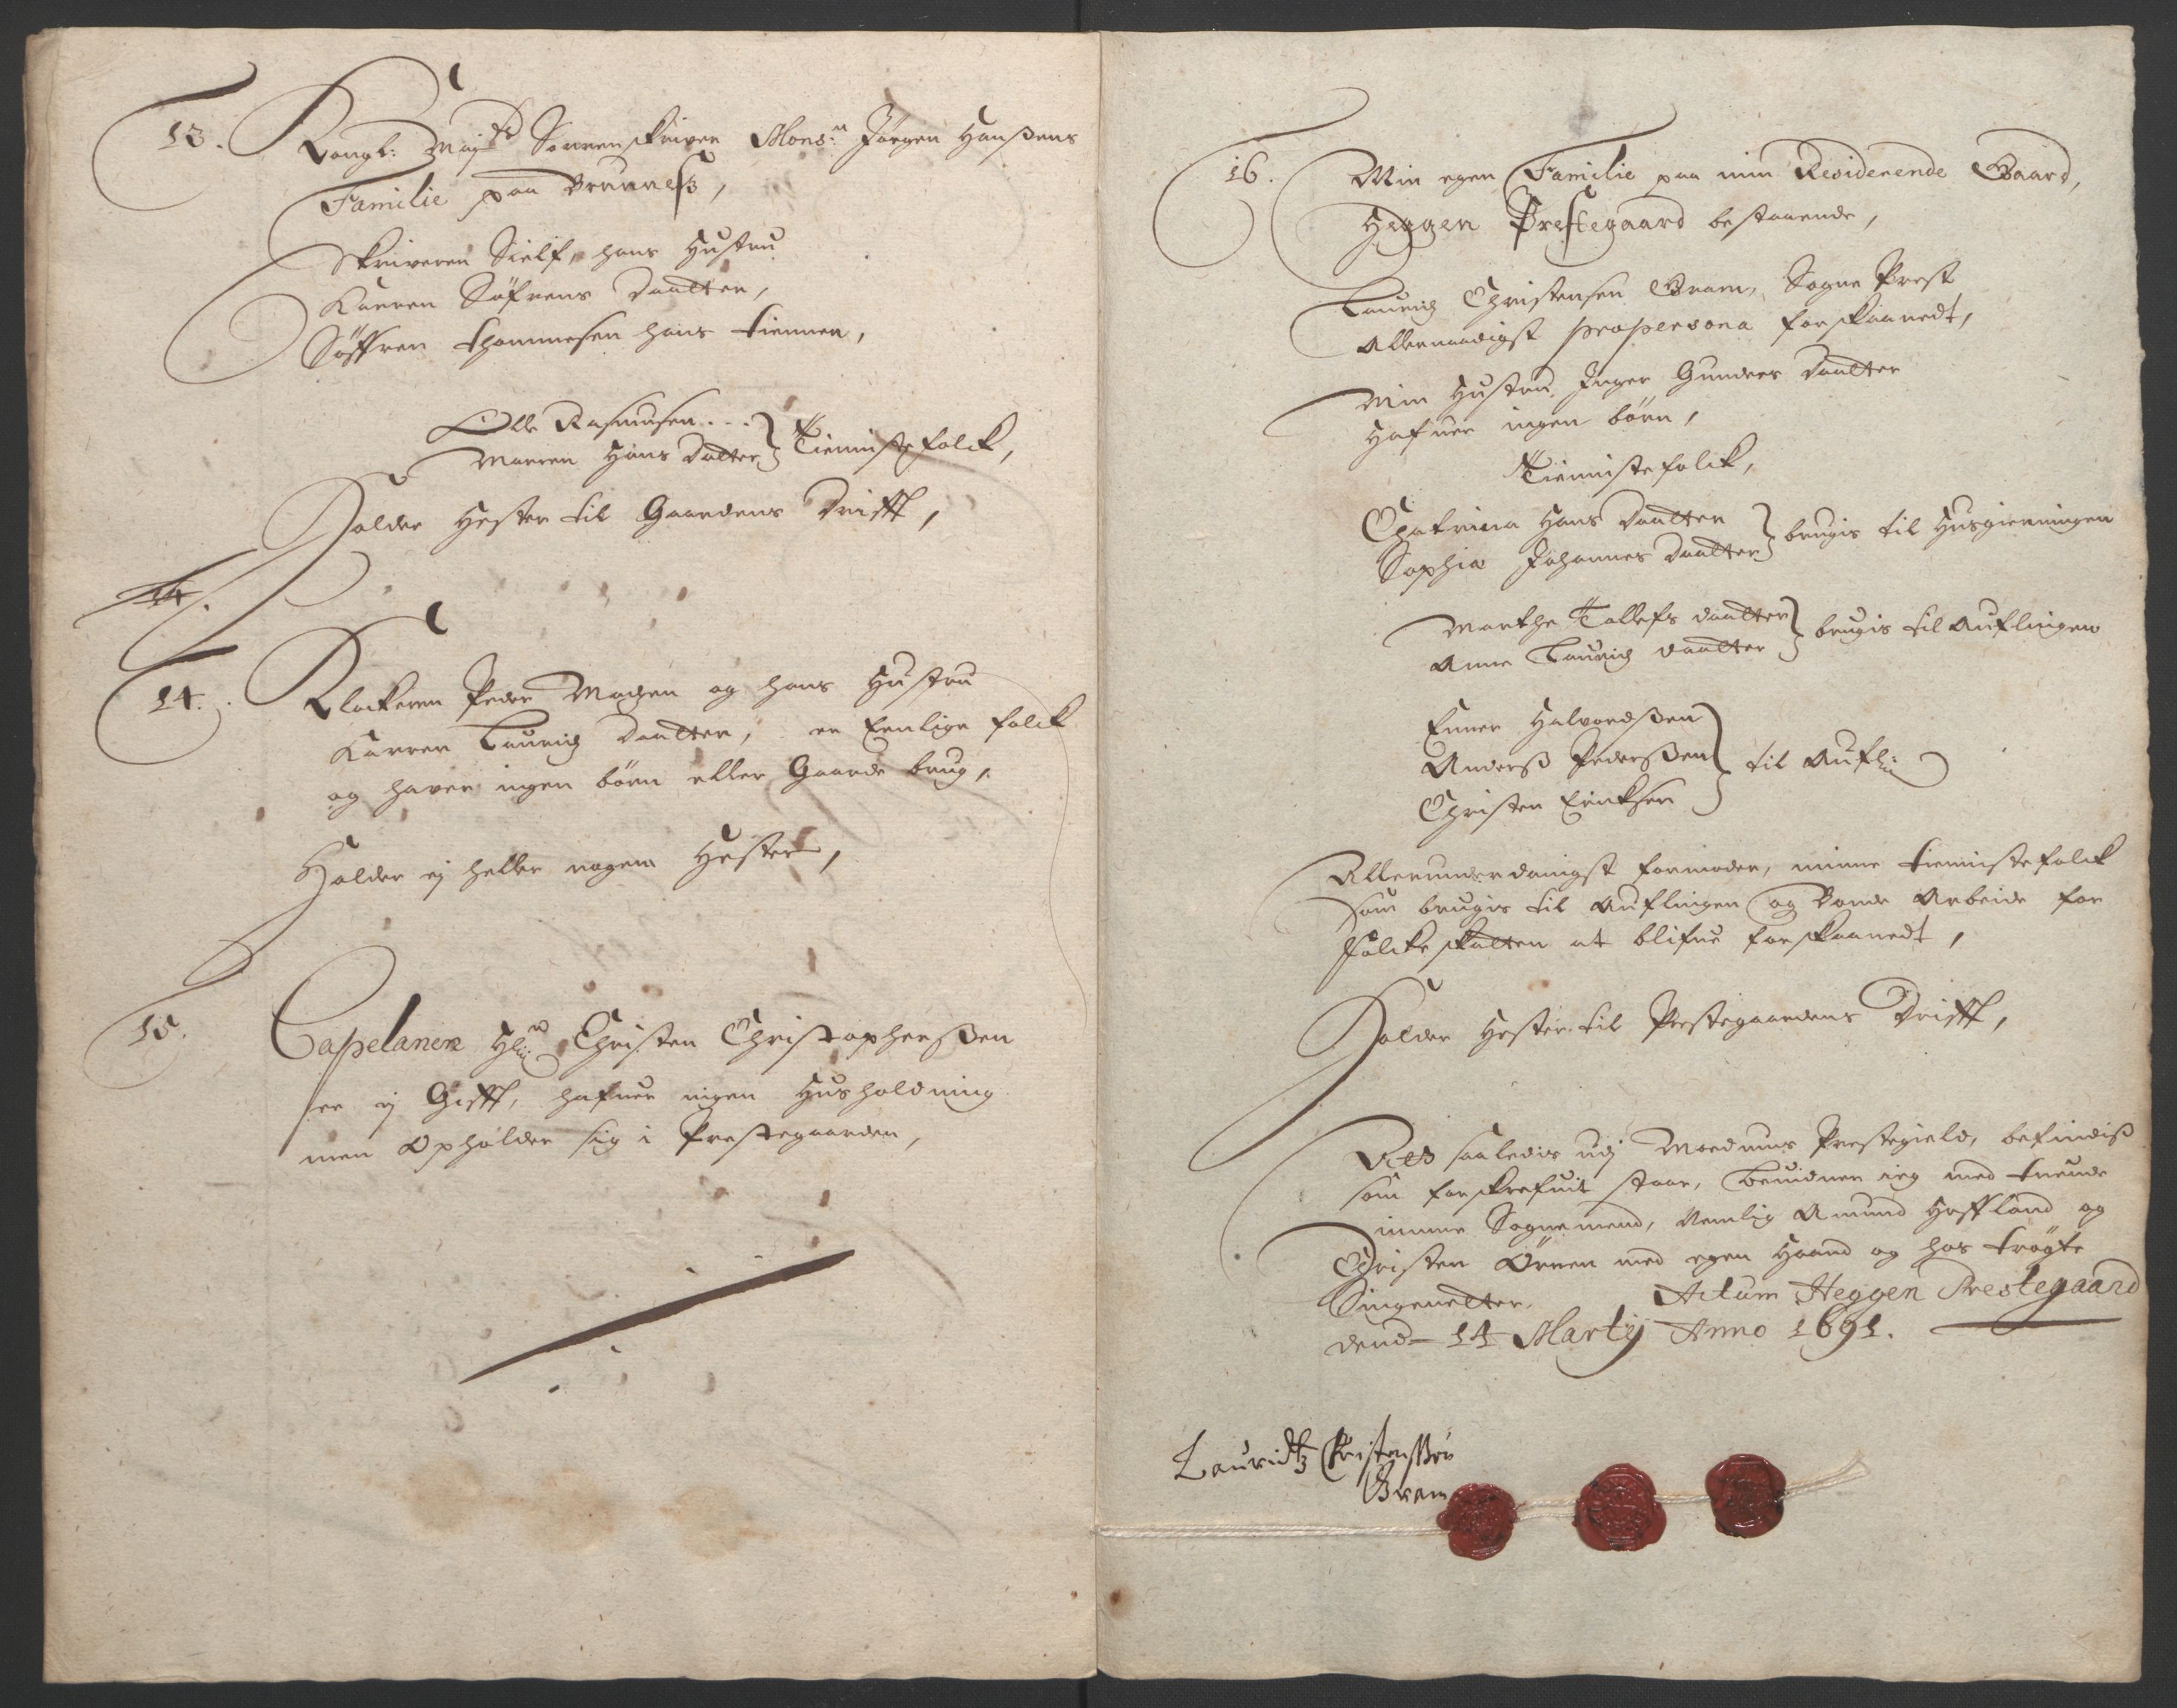 13. Kongl: May^tz Sorrenskriver Mons:^r Jørgen Hanßens
Familie paa Brunneß,
Skriveren Sielf, hans Hustru
Karren Søfrens Daatter,
Søffren Thommesen hans tienner,
Olle Rasmusen . . .
Marren Hans Datter } Tienniste folck,
Holder Hester til Gaardens Drifft,
14. Klockeren Peder Madzen og hans Hustru
Karren Lauridz Daatter, er Eenlige folck
og haver ingen børn eller Gaards brug,
Holder ej heller nogen Hester,
15. Capelanen Hr: Christen Christophersßen
er ej Gifft, hafuer ingen Husholdning
men Opholder sig i Prestegaarden,
16. Min egen Familie paa min Residerende Gaard,
Heggen Prestegaard bestaaende,
Lauridz Christensen Gram, Sogne Prest
Allernaadigst propersona forskaanedt,
Min Hustru Inger Gunders Daatter
Hafuer ingen børn,
Tiennistefolck,
Chatrina Hans Daatter
Sophia Johannes Daatter } brugis til Husgierningen
Marthe Tollefs daatter
Anne Lauridz daatter } brugis til Auflingen
Enner Halvordßen
Anderß Pederßen } til Aufl:
Christen Ericksen
Allerunderdanigst formoder, minne tiennistefolck
som brugis til Auflingen og Bonde Arbeide for
Folckeskatten at blifue forskaanedt,
Holder Hester til Prestegaardens Drifft,
Det saaledis udj Modums Prestegield, befindiß
som forskrefuit staar, Bevidner ieg med tvende
minne Sognemend, Nemlig Amund Hoffland og
Christen Ørnen med egen Haand og hos trøgte
Singenetter. Actum Heggen Prestegaard
dend 14 Martij Anno 1691.
Lauridtz Christenßøn
Gram